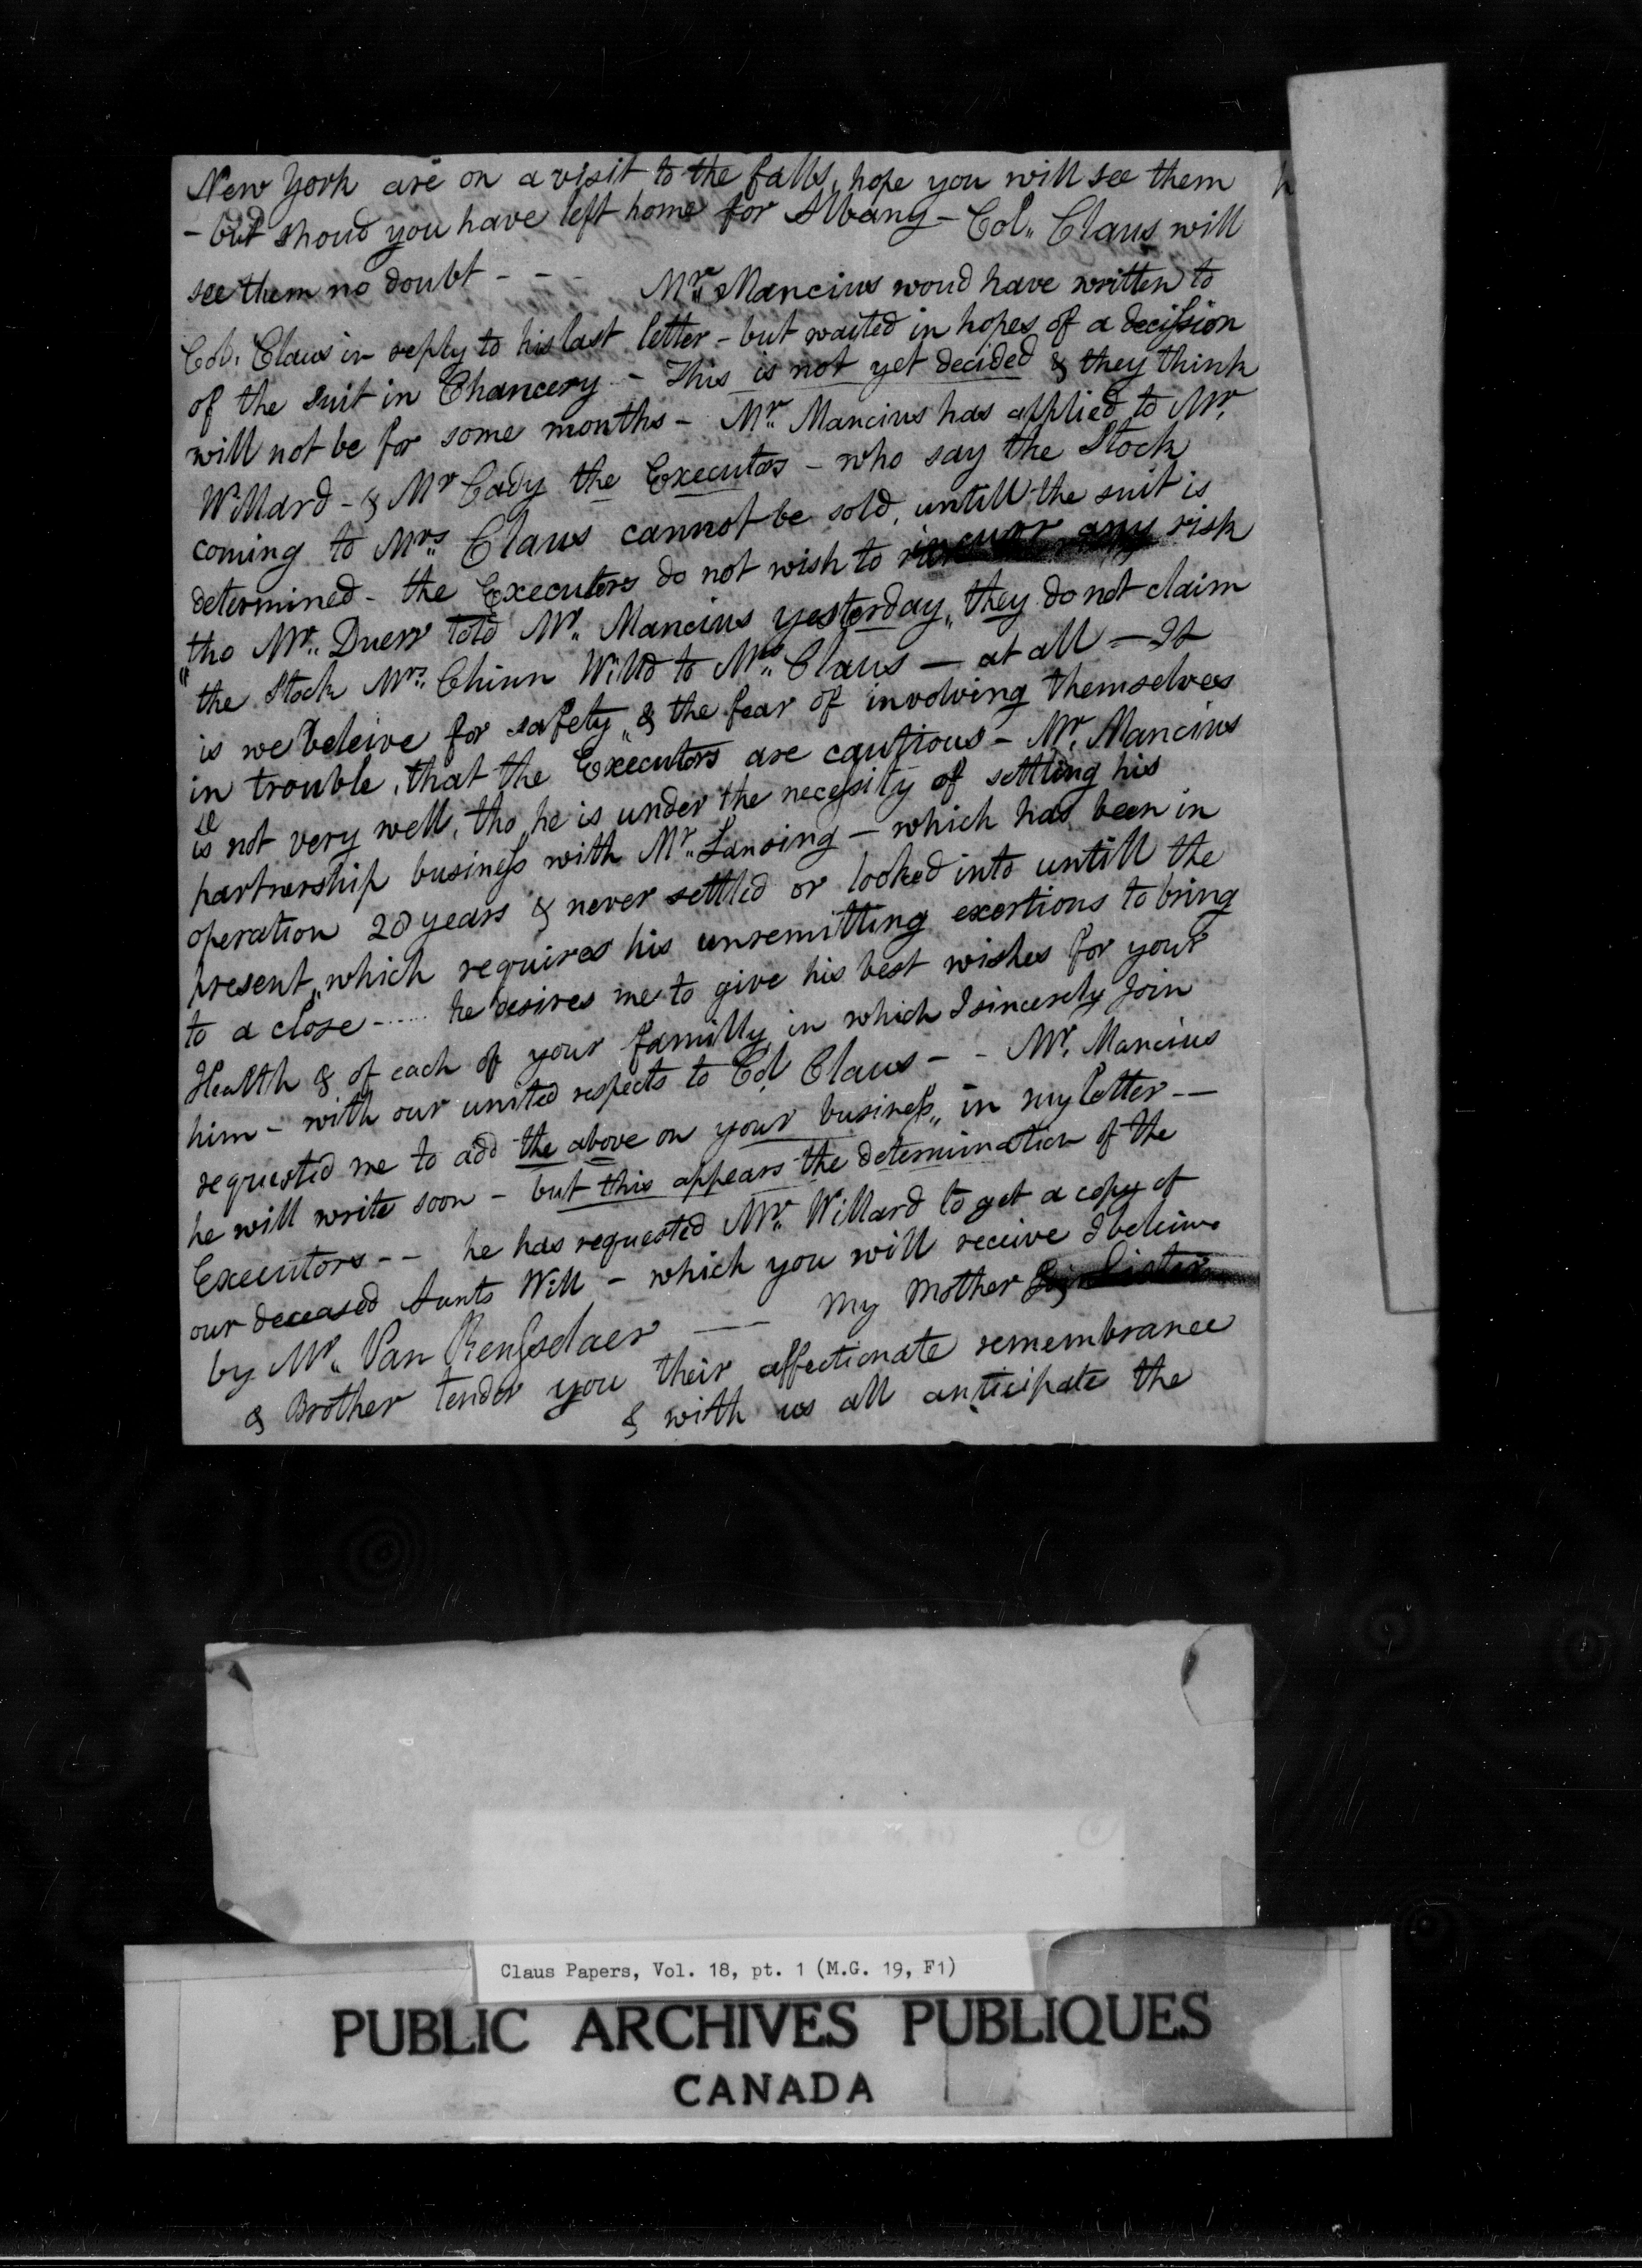 New York are on a visit to the falls, hope you will see them
- but shoud you have left home for Albany - Col. Claus will
see them no doubt - - - Mr. Mancius woud have written to
Col. Claus in reply to his last letter - but waited in hopes of a decission
of the suit in Chancery - This is not yet decided & they think
will not be for some months - Mr. Mancius has applied to Mr.
Willard - & Mr Cady the Executors - who say the Stock
coming to Mrs. Claus cannot be sold, untill the suit is
determined - the Executors do not wish to incurr any risk
"tho Mr. Duer told Mr. Mancius yesterday, they do not claim
the Stock Mrs. Chinn Willd to Mrs. Claus - at all - It
is we beleive for safety, & the fear of involving themselves
in trouble, that the Executors are cautious - Mr. Mancius
is not very well, tho he is under the necessity of settling his
partnership business with Mr. Lansing - which has been in
operation 20 years & never settled or looked into untill the
present, which requires his unremitting exertions to bring
to a close - ..... he desires me to give his best wishes for your
Health & of each of your familly, in which I sincerely Join
him - with our united respects to Col Claus - - Mr. Mancius
requested me to add the above on your business, in my letter --
he will write soon - but this appears the determination of the
Executors -- he has requested Mr. Willard to get a copy of
our deceased Aunts Will - which you will receive I beleive
by Mr. Van Rensselaer -- My Mother Sister
& Brother tender you their affectionate remembrance
& with us all anticipate the
Claus Papers, Vol. 18, pt. 1 (M.G. 19, F1)
PUBLIC ARCHIVES PUBLIQUES
CANADA